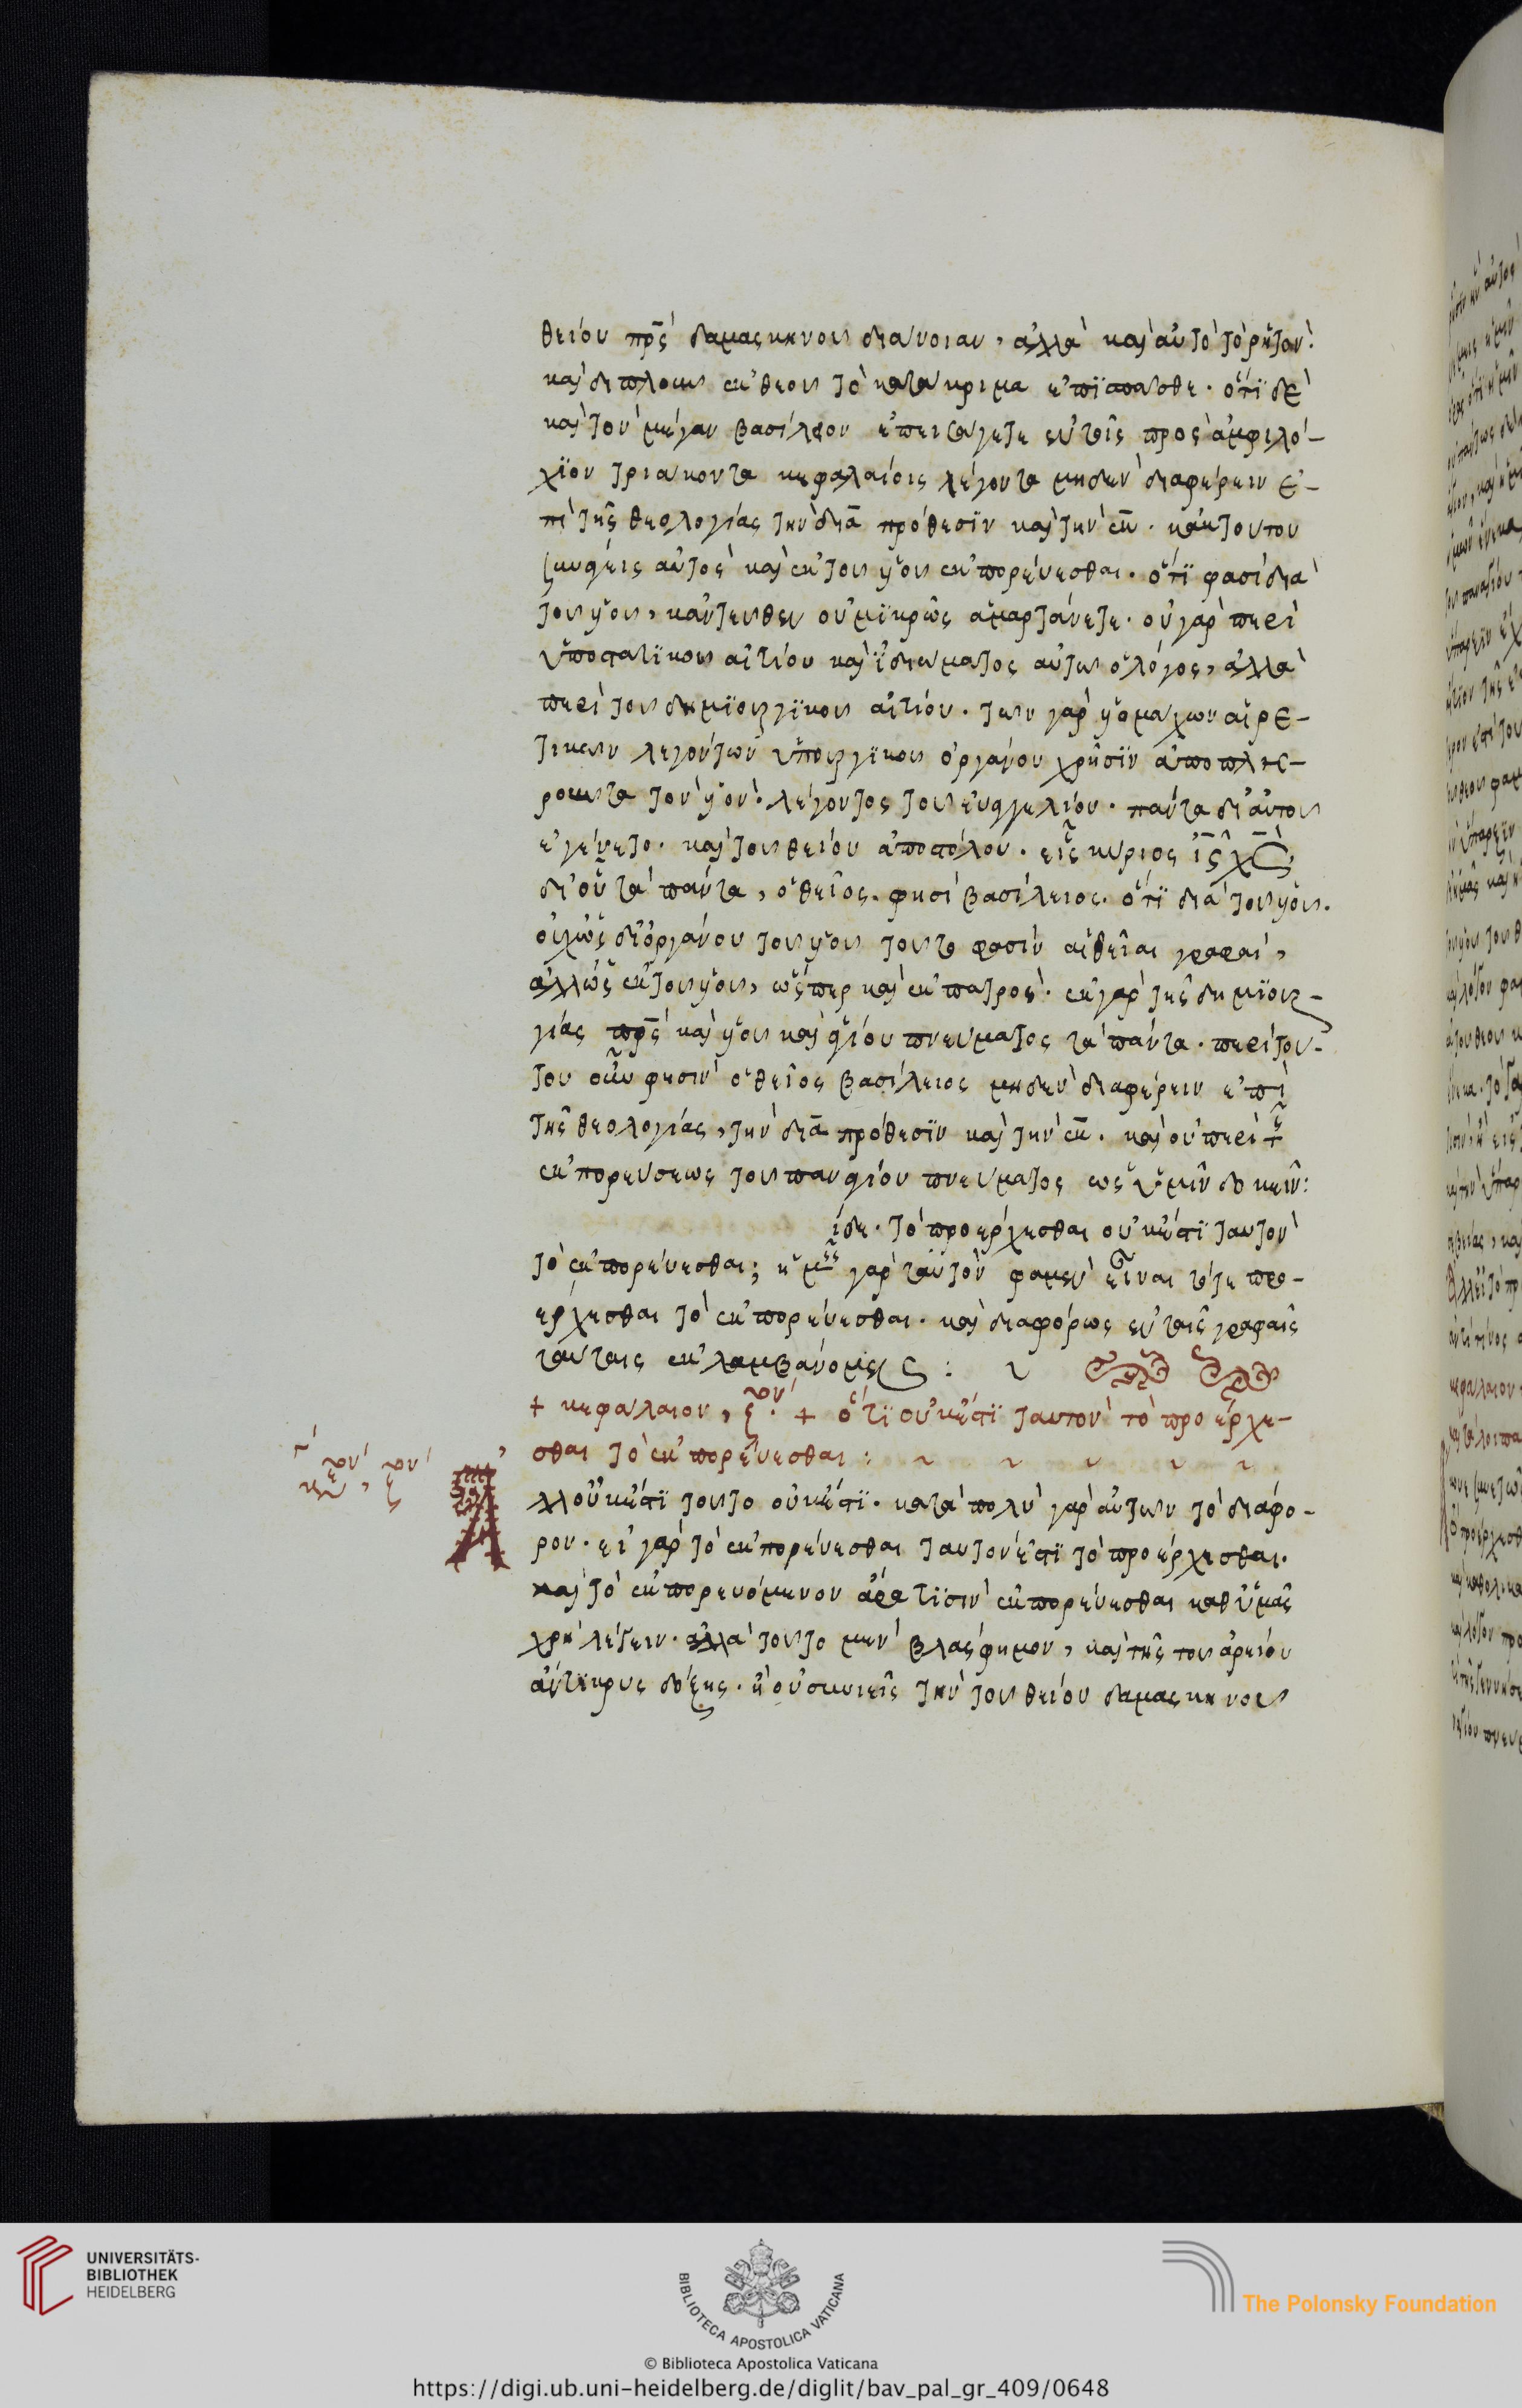 θείου πρς δαμασκηνοῦ διάνοιαν, ἀλλὰ καὶ αὐτὸ τὸ ῥητὸν.
καὶ διπλοῦν ἐκ θεοῦ τὸ κατάκριμα ἐπϊσπᾶσθε. ὅτϊ δὲ
καὶ τὸν μέγαν βασίλειον ἐπεισάγετε ἐν τοῖς πρὸς ἀμφιλό-
χϊον τριάκοντα κεφαλαίοις λέγοντα μηδὲν διαφέρειν ἐ-
πὶ τῆς θεολογίας τὴν διὰ πρόθεσϊν καὶ τὴν ἐκ. κἀκ τούτου
αὐτὸς καὶ ἐκ τοῦ υἱοῦ ἐκπορεύεσθαι. ὅτϊ φασὶ διὰ
τοῦ υἱοῦ, κἀντεῦθεν οὐ μϊκρῶς ἁμαρτάνετε. οὐ γὰρ περὶ
ὑποστατϊκοῦ αἰτίου καὶ ἰδιώματος αὐτῶ ὁ λόγος, ἀλλὰ
περὶ τοῦ δημϊουργϊκοῦ αἰτίου. τῶν γὰρ υἱομάχων αἱρε-
τικῶν λεγόντων ὑπουργϊκοῦ ὀργάνου χρῆσϊν ἀποπλη-
ροῦντα τὸν υἱὸν. λέγοντος τοῦ εὐαγγελίου. πάντα δι' αὐτοῦ
ἐγένετο. καὶ τοῦ θείου ἀποστόλου. εἷς κύριος ις χς
δι' οὗ τὰ πάντα, ὁ θεῖος φησὶ βασίλειος. ὅτϊ διὰ τοῦ υἱοῦ.
οὐχ ὡς δι' ὀργάνου τοῦ υἱοῦ τοῦτο φασὶν αἱ θεῖαι γραφαί,
ἀλλ' ὡς ἐκ τοῦ υἱοῦ, ὥσπερ καὶ ἐκ πατρὸς. ἐκ γὰρ τῆς δημϊουρ-
γίας πρς καὶ υἱοῦ καὶ ἁγίου πνεύματος τὰ πάντα. περὶ τού-
του οὖν φησὶν ὁ θεῖος βασίλειος μηδὲν διαφέρειν ἐπὶ
τῆς θεολογίας, τὴν διὰ πρόθεσϊν καὶ τὴν ἐκ. καὶ οὐ περὶ τῆς
ἐκπορεύσεως τοῦ παναγίου πνεύματος ὡς ὑμῖν δοκεῖν:
ἰδε. τὸ προέρχεσθαι οὐκ ἔστϊ ταυτὸν
τὸ ἐκπορεύεσθαι; ἡμεῖς γὰρ ταὐτὸν φαμὲν εἶναι τό τε προ-
έρχεσθαι τὸ ἐκπορεύεσθαι. καὶ διαφόρως ἐν ταῖς γραφαῖς
ταύταις ἐκλαμβανόμεν :
+ κεφάλαιον, ξον. + ὅτϊ οὐκ ἔστϊ ταυτὸν τὸ προέρχε-
σθαι τὸ ἐκπορεύεσθαι :
Ἀλλ' οὐκ ἔστϊ τοῦτο οὐκ ἔστϊ. κατὰ πολὺ γὰρ αὐτῶν τὸ διάφο-
ρον. εἰ γὰρ τὸ ἐκπορεύεσθαι ταυτόν ἐστϊ τὸ προέρχεσθαι.
καὶ τὸ ἐκπορευόμενον ἄρα τϊσὶν ἐκπορεύεσθαι καθ' ὑμᾶς
χρὴ λέγειν. ἀλλὰ τοῦτο μὲν βλάσφημον, καὶ τῆς τοῦ ἀρείου
ἄντϊκρυς δόξης. ἢ οὐ συνιεῖς τὴν τοῦ θείου δαμασκηνοῦ
UNIVERSITÄTS-
BIBLIOTHEK
HEIDELBERG
BIBLIOTECA APOSTOLICA VATICANA
The Polonsky Foundation
© Biblioteca Apostolica Vaticana
https://digi.ub.uni-heidelberg.de/diglit/bav_pal_gr_409/0648